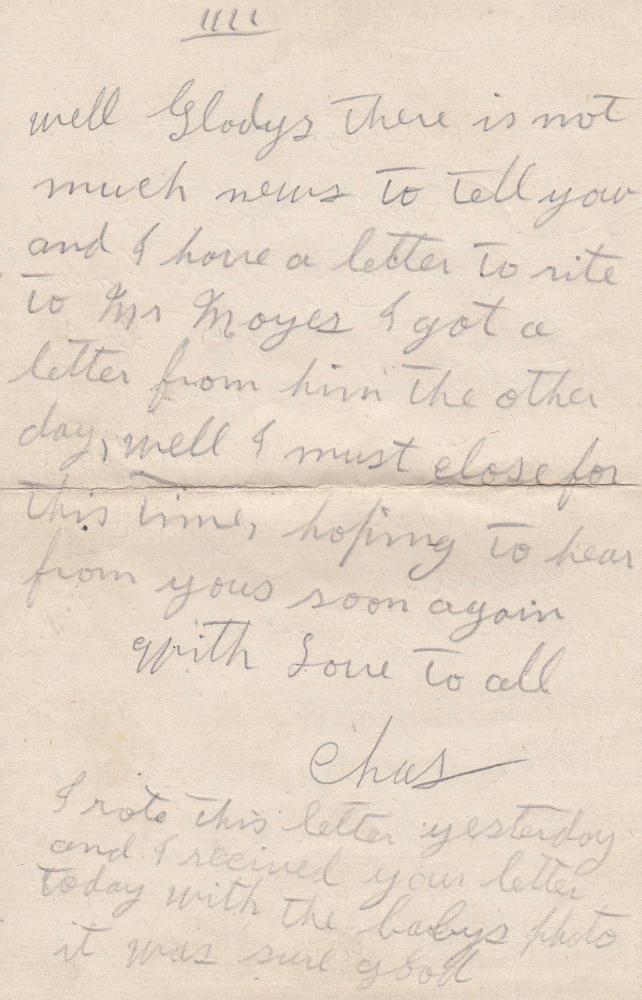 IIII
well Gladys there is not
much news to tell you
and I have a letter to rite
to Mr Moyes I got a
letter from him the other
day, well I must close for
this time, hoping to hear
from yous soon again
With Love to all
Chas
I rote this letter yesterday
and I received your letter
today with the babys photo
it was sure good